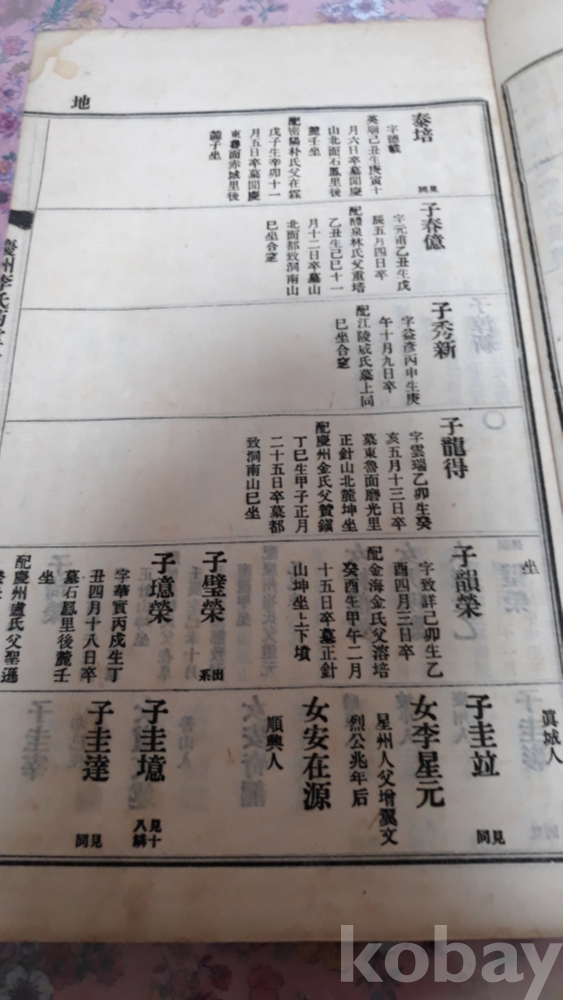 地
泰培
見同
字德載
英廟己丑生庚寅十
月六日卒墓聞慶
山北面石鳳里後
麓壬坐
配密陽朴氏父在霖
戊子生辛卯十一
月五日卒墓聞慶
東魯面赤城里後
麓子坐
子春億
字元甫乙丑生戊
辰五月四日卒
配醴泉林氏父重培
乙丑生己巳十一
月十二日卒墓山
北面都致洞南山
巳坐合窆
子秀新
字益彥丙申生庚
午十月九日卒
配江陵咸氏墓上同
巳坐合窆
子龍得
字雲瑞乙卯生癸
亥五月十三日卒
墓東魯面磨光里
正針山北麓坤坐
配慶州金氏父贊鎭
丁巳生甲子正月
二十五日卒墓都
致洞南山巳坐
坐
子韻榮
字致詳己卯生乙
酉四月三日卒
配金海金氏父溶培
癸酉生甲午二月
十五日卒墓正針
山坤坐上下墳
子璧榮
出系
子璁榮
字華實丙戌生丁
丑四月十八日卒
墓石鳳里後麓壬
坐
配慶州盧氏父聖遜
眞城人
子圭竝
見同
女李星元
星州人父增翼文
烈公兆年后
女安在源
順興人
子圭璁
見十八冊
子圭達
見同
慶州李氏
kobay